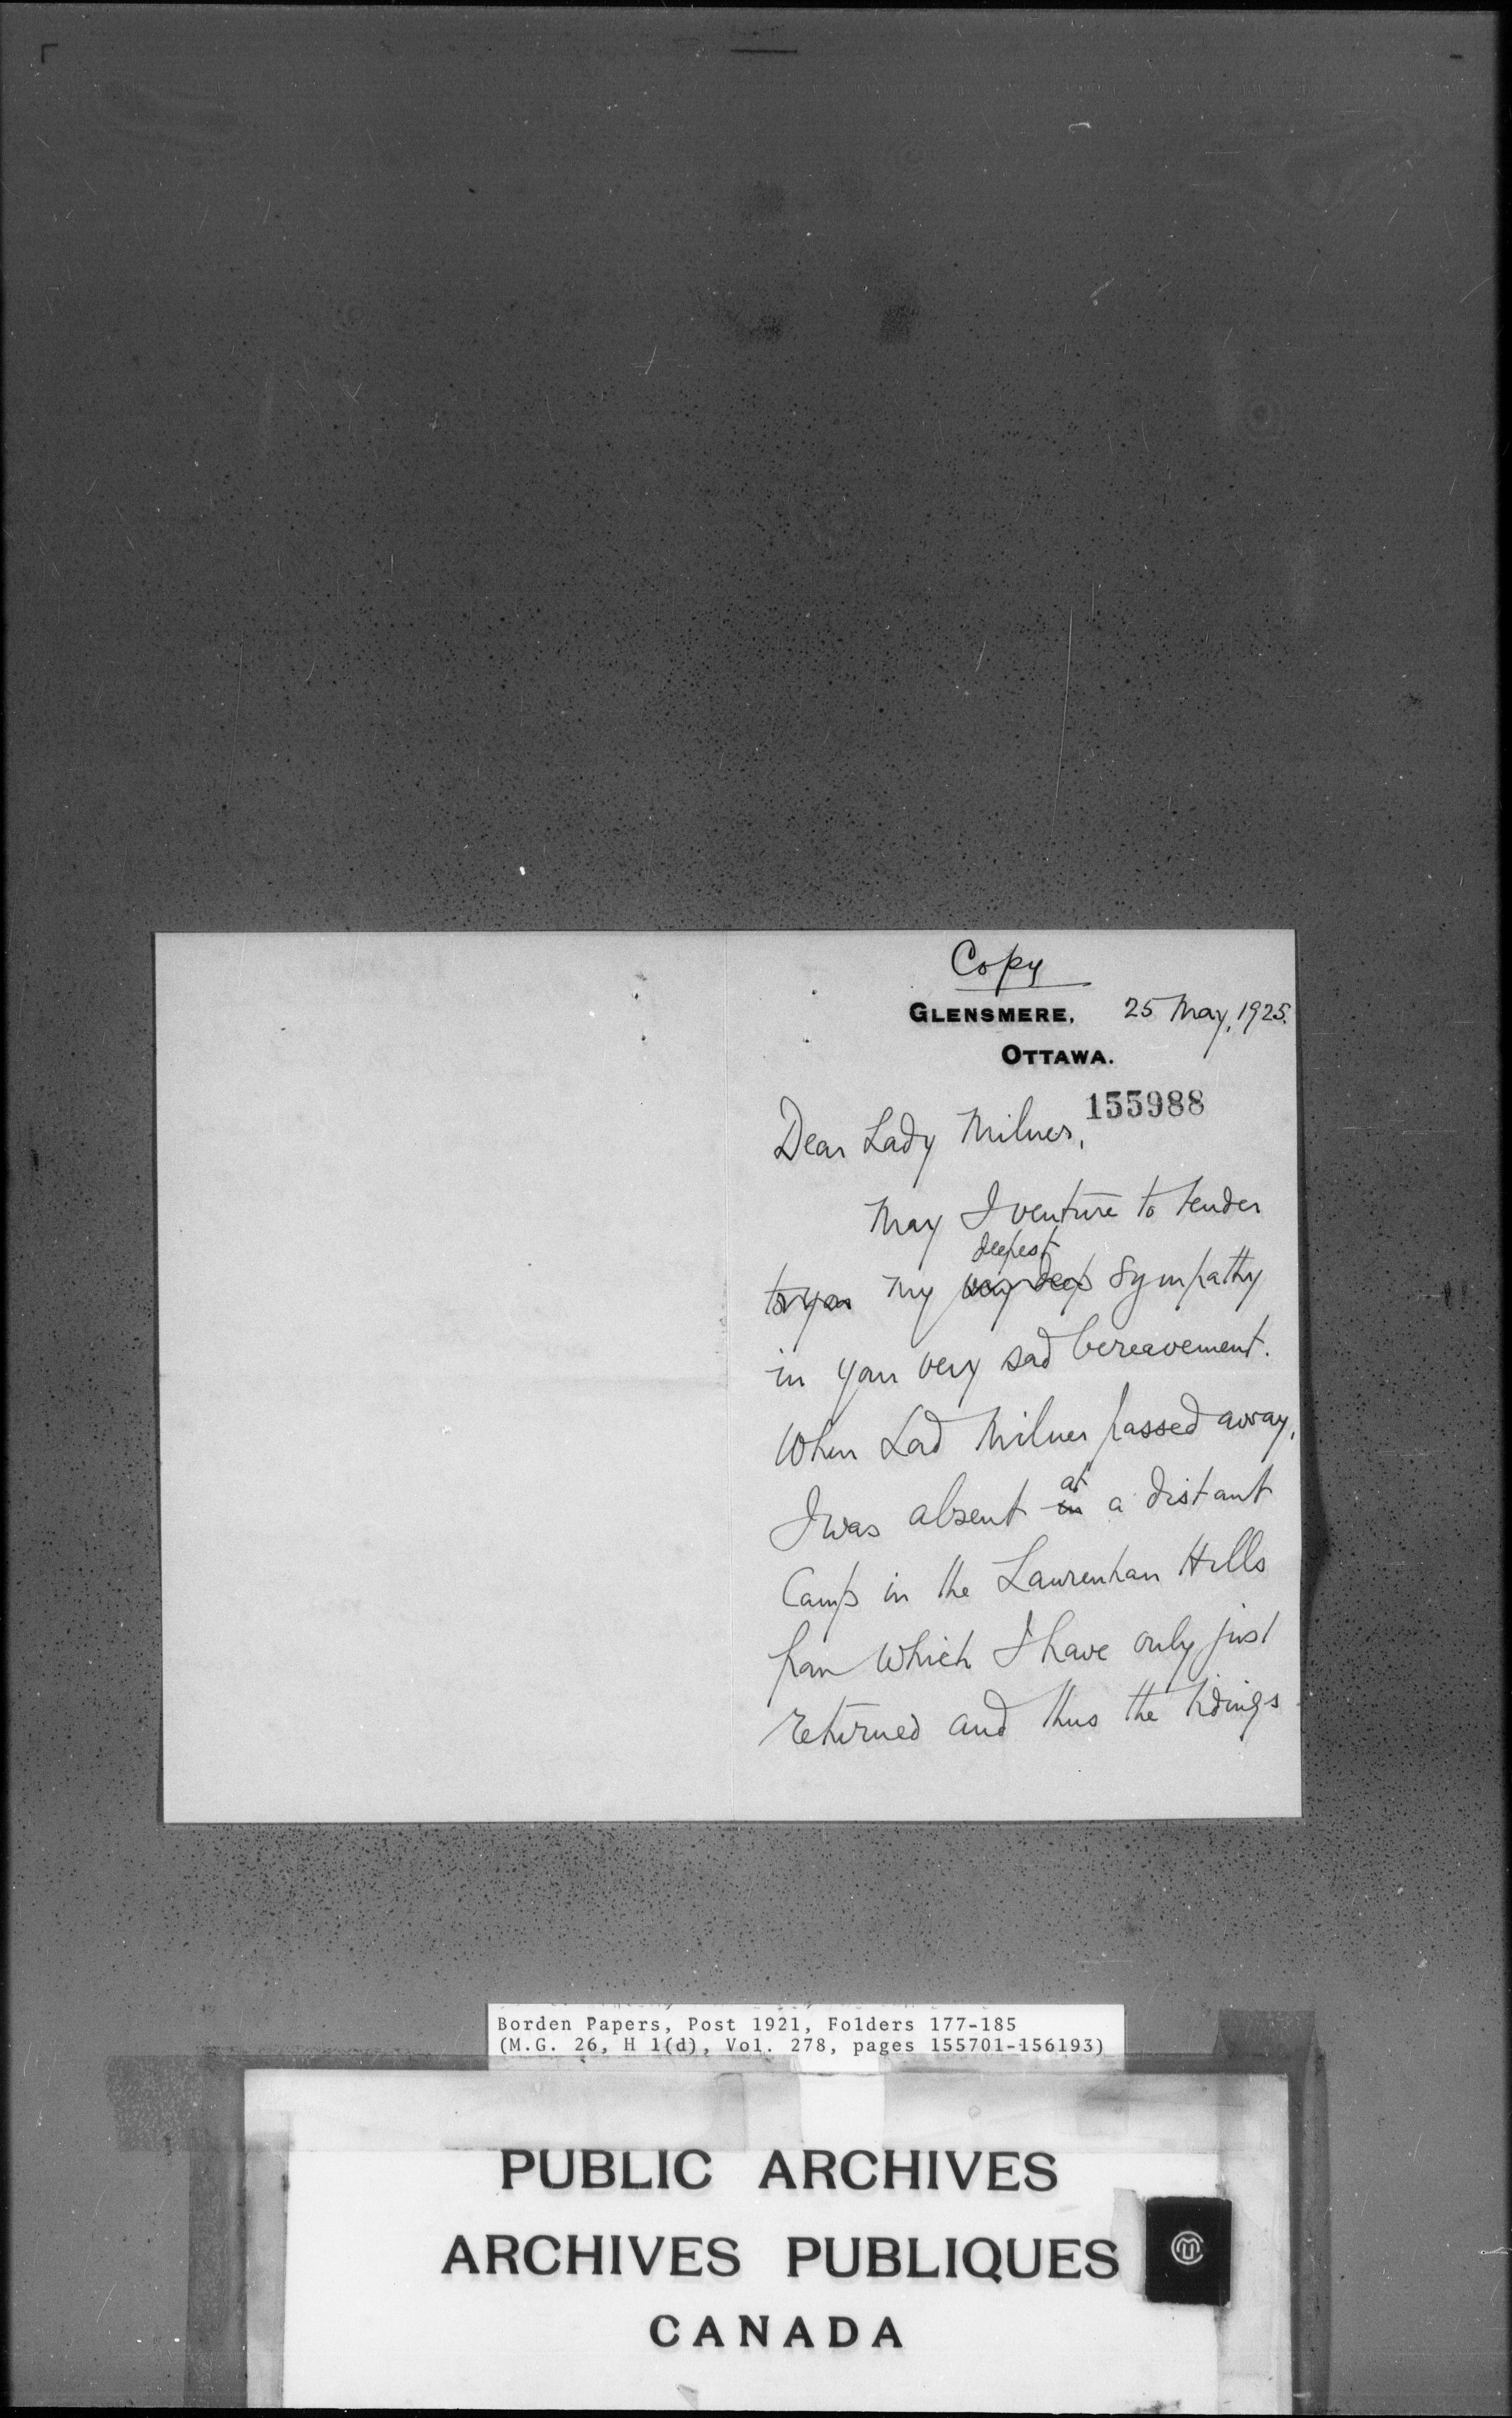 Copy
GLENSMERE. 25 May, 1925.
OTTAWA.
155988
Dear Lady Milner,
May I venture to tender
deepest
to you my very deep sympathy
in your very sad bereavement.
When Lord Milner passed away,
at
I was absent in a distant
Camp in the Laurentian Hills
from which I have only just
returned and thus the tidings
Borden Papers, Post 1921, Folders 177-185
(M.G. 26, H 1(d), Vol. 278, pages 155701-156193)
PUBLIC ARCHIVES
ARCHIVES PUBLIQUES
CANADA